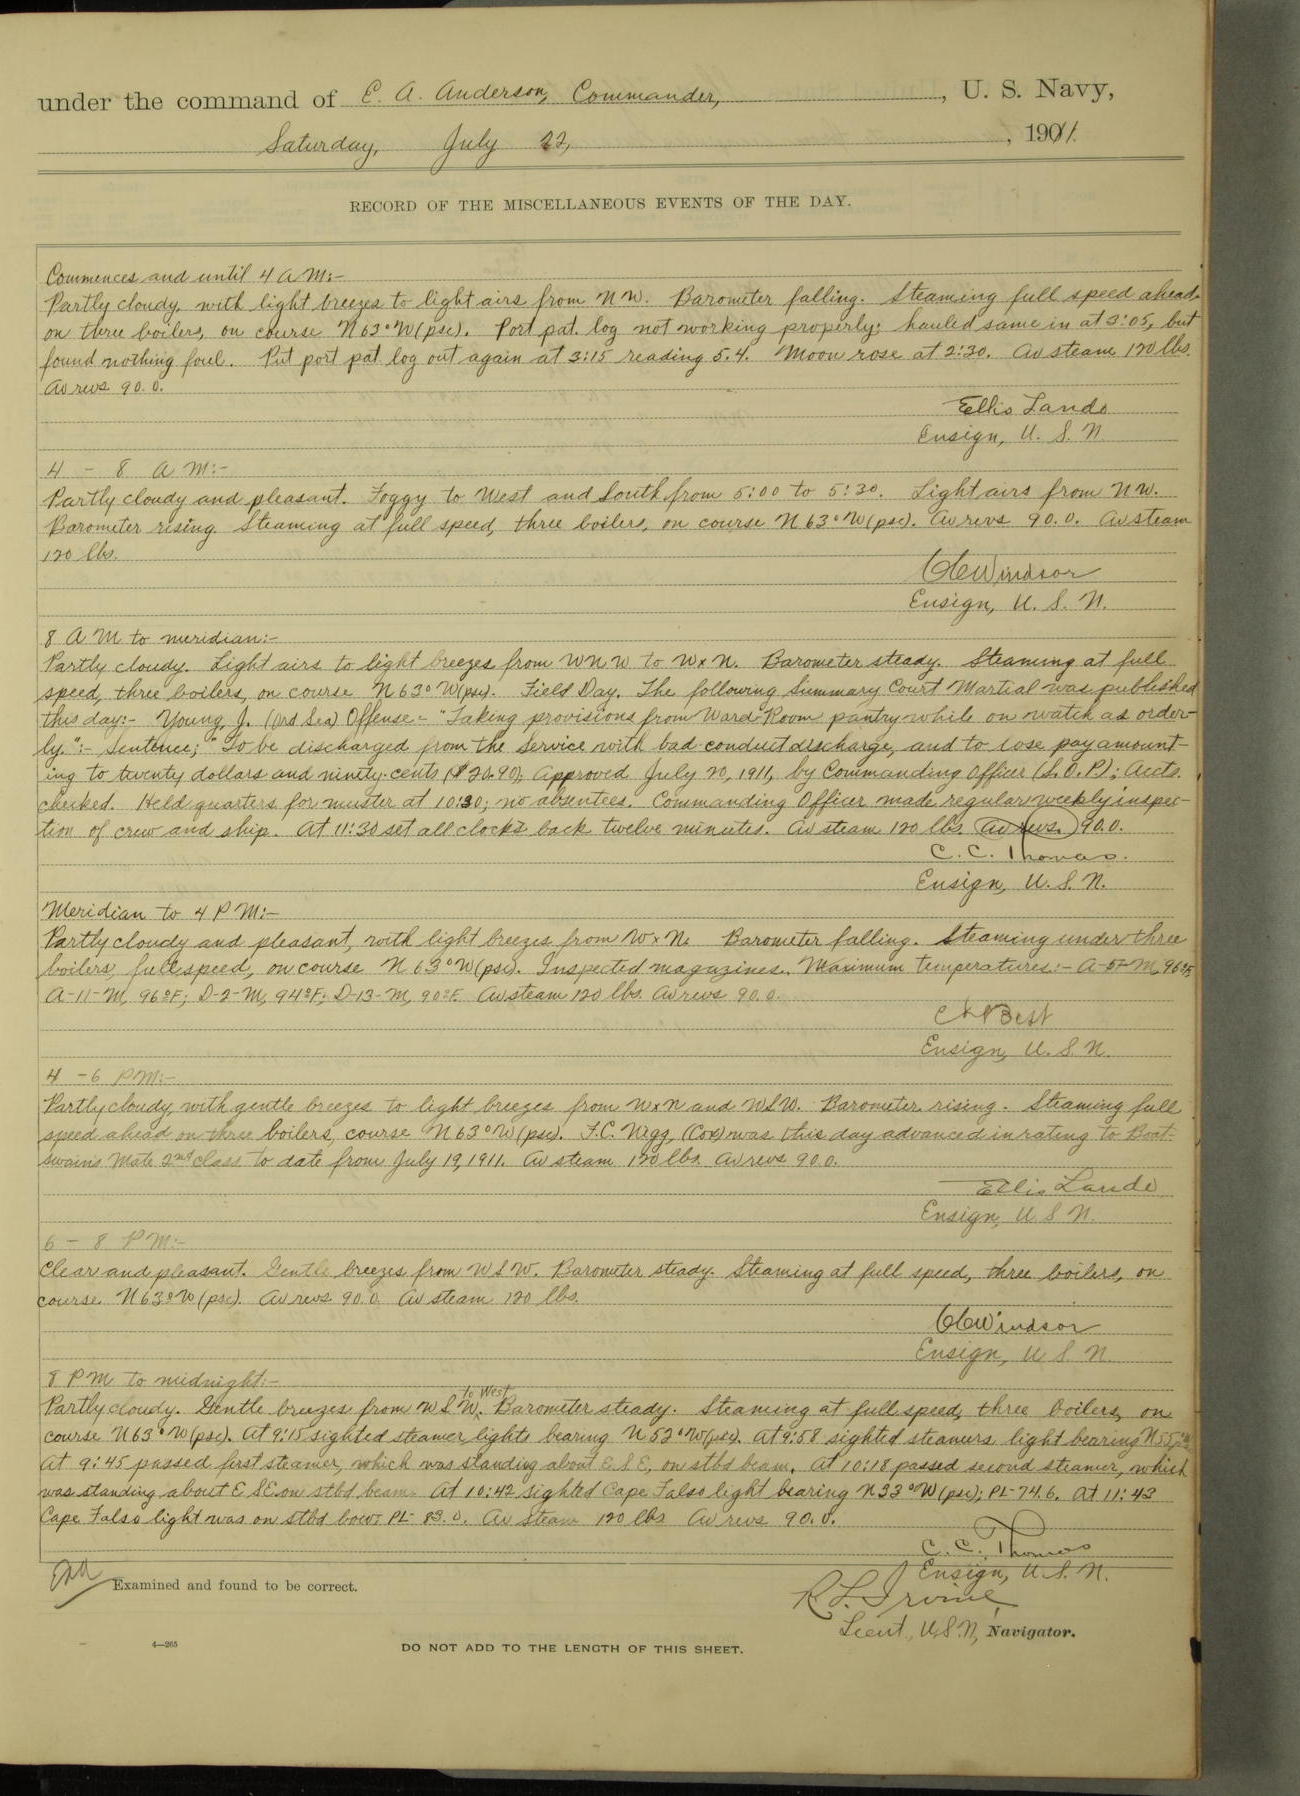 under the command of E. A. Anderson, Commander, , U. S. Navy,
Saturday, July 22, , 1911.
RECORD OF THE MISCELLANEOUS EVENTS OF THE DAY.
Commences and until 4 A M:-
Partly cloudy, with light breezes to light airs from NW. Barometer falling. Steaming full speed ahead
on three boilers, on course N 63° W (psc). Port pat. log not working properly; hauled same in at 3:05, but
found nothing foul. Put port pat log out again at 3:15 reading 5.4. Moon rose at 2:30. Av steam 120 lbs.
Av revs 90.0.
Ellis Lando
Ensign, U. S. N.
4 - 8 A M:-
Partly cloudy and pleasant. Foggy to West and South from 5:00 to 5:30. Light airs from NW.
Barometer rising. Steaming at full speed, three boilers, on course N 63° W (psc). Av revs 90.0. Av steam
120 lbs.
Windsor
Ensign, U. S. N.
8 A M to meridian:-
Partly cloudy. Light airs to light breezes from WNW to WxN. Barometer steady. Steaming at full
speed, three boilers, on course N 63° W (psc). Field Day. The following Summary Court Martial was published
this day:- Young, J. (Ord Sea) Offense:- "Taking provisions from Ward-Room pantry while on watch as order-
ly.":- Sentence; "To be discharged from the Service with bad-conduct discharge, and to lose pay amount-
ing to twenty dollars and ninety-cents ($20.90); Approved July 20, 1911, by Commanding Officer (S.O.P.); Accts.
checked. Held quarters for muster at 10:30; no absentees. Commanding Officer made regular weekly inspec-
tion of crew and ship. At 11:30 set all clocks back twelve minutes. Av steam 120 lbs. Av revs. 90.0.
C. C. Thomas.
Ensign, U. S. N.
Meridian to 4 P M:-
Partly cloudy and pleasant, with light breezes from WxN. Barometer falling. Steaming under three
boilers, full speed, on course N 63° W (psc). Inspected magazines. Maximum temperatures:- 96°F,
A-11-M, 96°F; D-2-M, 94°F; D-13-M, 90°F. Av steam 120 lbs. Av revs 90.0.
Best
Ensign, U. S. N.
4 - 6 P M:-
Partly cloudy, with gentle breezes to light breezes from WxN and WSW. Barometer rising. Steaming full
speed ahead on three boilers, course N 63° W (psc). F.C. Nigg, (Cox) was this day advanced in rating to Boat-
swains Mate 2nd class to date from July 19, 1911. Av steam 120 lbs. Av revs 90.0.
Ellis Lando
Ensign, U. S. N.
6 - 8 P M:-
Clear and pleasant. Gentle breezes from WSW. Barometer steady. Steaming at full speed, three boilers, on
course N 63° W (psc). Av revs 90.0. Av steam 120 lbs.
Windsor
Ensign, U S N.
8 P M to midnight:-
Partly cloudy. Gentle breezes from WSW. to West. Barometer steady. Steaming at full speed, three boilers, on
course N 63° W (psc). At 9:15 sighted steamer lights bearing N 52° W (psc). At 9:58 sighted steamers light bearing
At 9:45 passed first steamer, which was standing about E S E, on stbd beam. At 10:18 passed second steamer, which
was standing about E SE on stbd beam. At 10:42 sighted Cape Falso light bearing N 33° W (psc); PL-74.6. At 11:43
Cape Falso light was on stbd bow. PL- 83.0. Av Steam 120 lbs Av revs 90.0.
C. C. Thomas
Ensign, U. S. N.
Examined and found to be correct.
R. L. Irvine,
Lieut., U.S.N., Navigator.
4—265
DO NOT ADD TO THE LENGTH OF THIS SHEET.